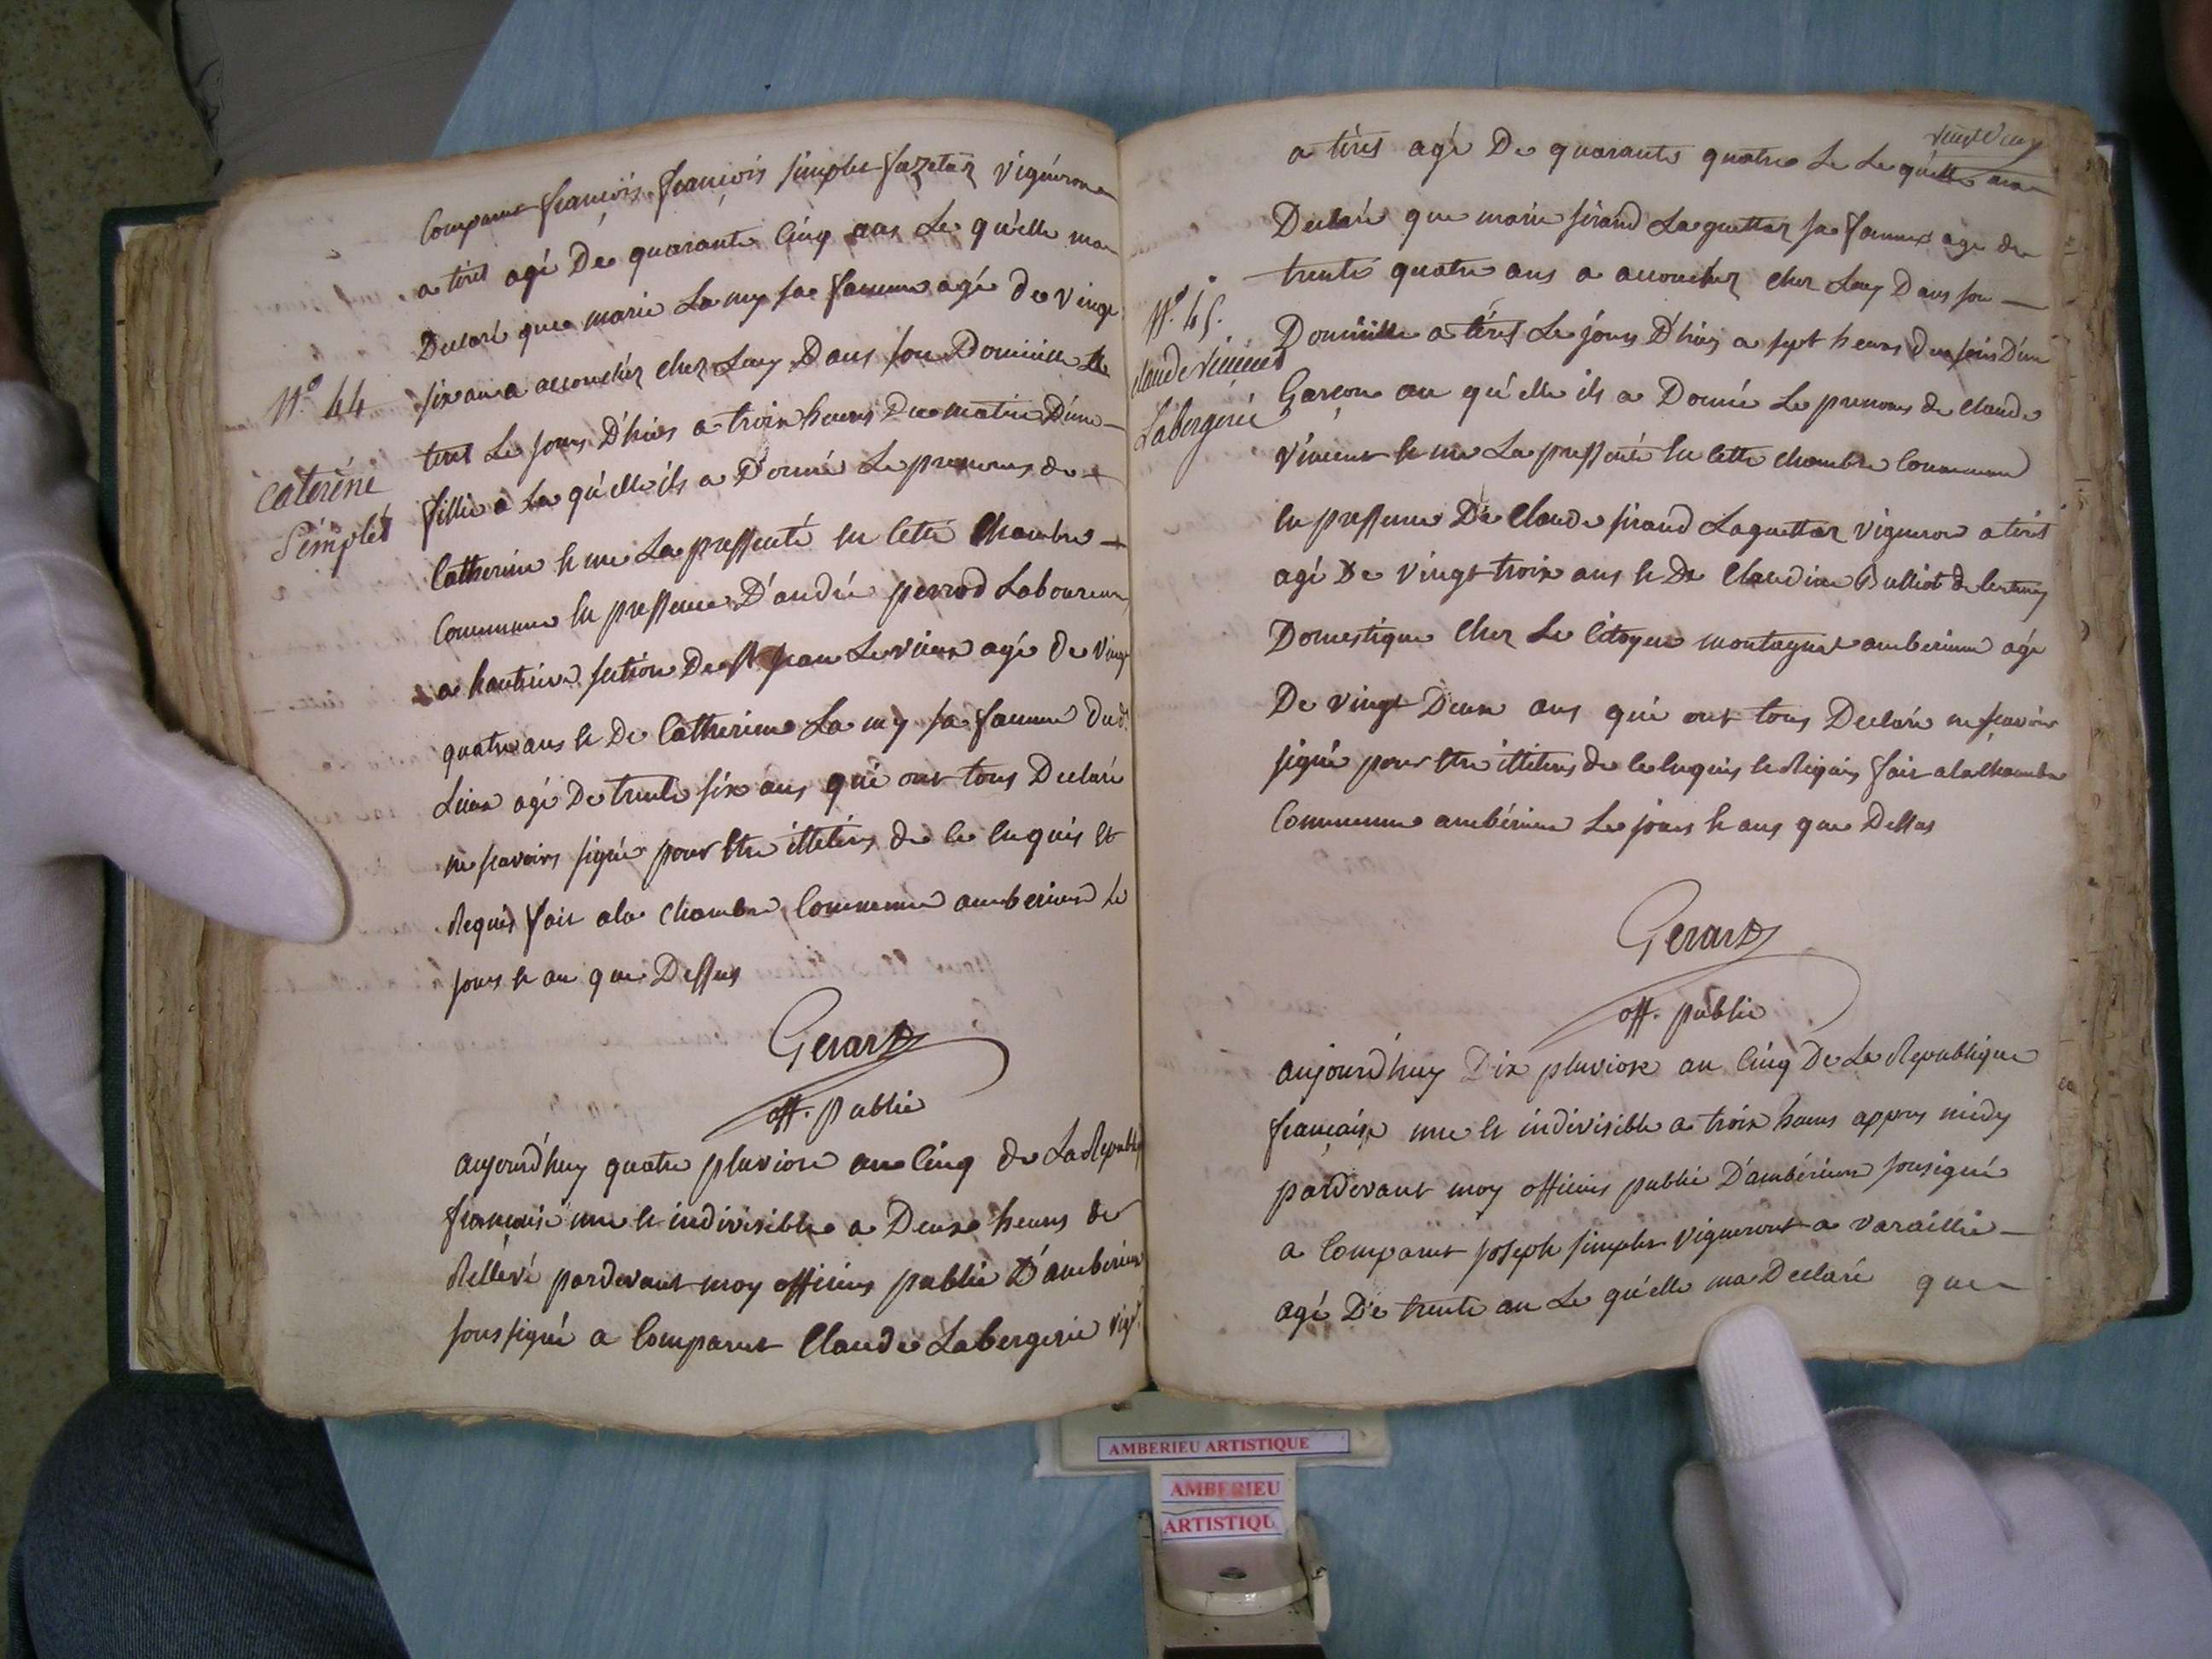 Comparut françois françois simplet fazetaz vigneron
a tiret agé De quarante Cinq ans Le qu'elle ma
Declaré que marie Lamy sa famme agé de vingt
N.° 44
six an a accouchéz chez Luy Dans son Domicille
tiret Le jours D'hiers a trois heures Du matin D'une
Caterine
Simplet
fillie a La qu'elle ils a Donné Le prenoms de
Catherine h me La pressenté en cette Chambre
Commune en pressence D'andré perrod Laboureur
a hauterive section De st jean Le vieux agé de vingt
quatre ans h De Catherine Lamy sa famme dud.
Lieux agé De trente six ans qui ont tous Declaré
ne savoirs signé pour etre illiters de ce enquis et
Requis fait ala Chambre Commune amberieux Le
jours h an que Dessus
Gerard
off. public
aujourd'huy quatre pluviose an Cinq de La Republ
française une h indivisible a Deuxe heures de
Rellevé pardevant moy officiers public D'amberieux
soussigné a Comparut Claude Labergerie vig.
vingt deux
a tiret agé De quarante quatre Le Le qu'elle ma
Declaré que marie sirand Laguettaz sa famme agé de
trente quatre ans a accouchéz chez Luy Dans son
N.° 45.
Domicille a tiret Le jours D'hiers a sept heures du soirs D'un
Claude Vincent
Labergerie
Garcon au qu'elle ils a Donné Le prenoms de Claude
Vincent h me La pressenté en cette chambre Commune
en pressence De Claude sirand Laguettaz vigneron a tiret
agé De vingt trois ans h De Claudine Bulliot
Domestique Chez Le Citoyen montagnat amberieux agé
De vingt Deux ans qui ont tous Declaré ne scavoir
signé pour etre illiters de ce enquis h Requis fait ala chambre
Commune ambérieux Le jours h ans que Dessus
Gerard
off. public
aujourd'huy Dix pluviose an Cinq De La Republique
française une h indivisible a trois heures appres midy
pardevant moy officiers public D'ambérieux sousigné
a Comparut joseph simplet vigneront a varaillie
agé De trente an Le qu'elle ma Declaré que
AMBERIEU ARTISTIQUE
AMBERIEU
ARTISTIQU